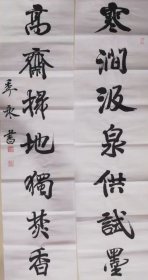 寒澗汲泉供試墨
高齋掃地獨焚香